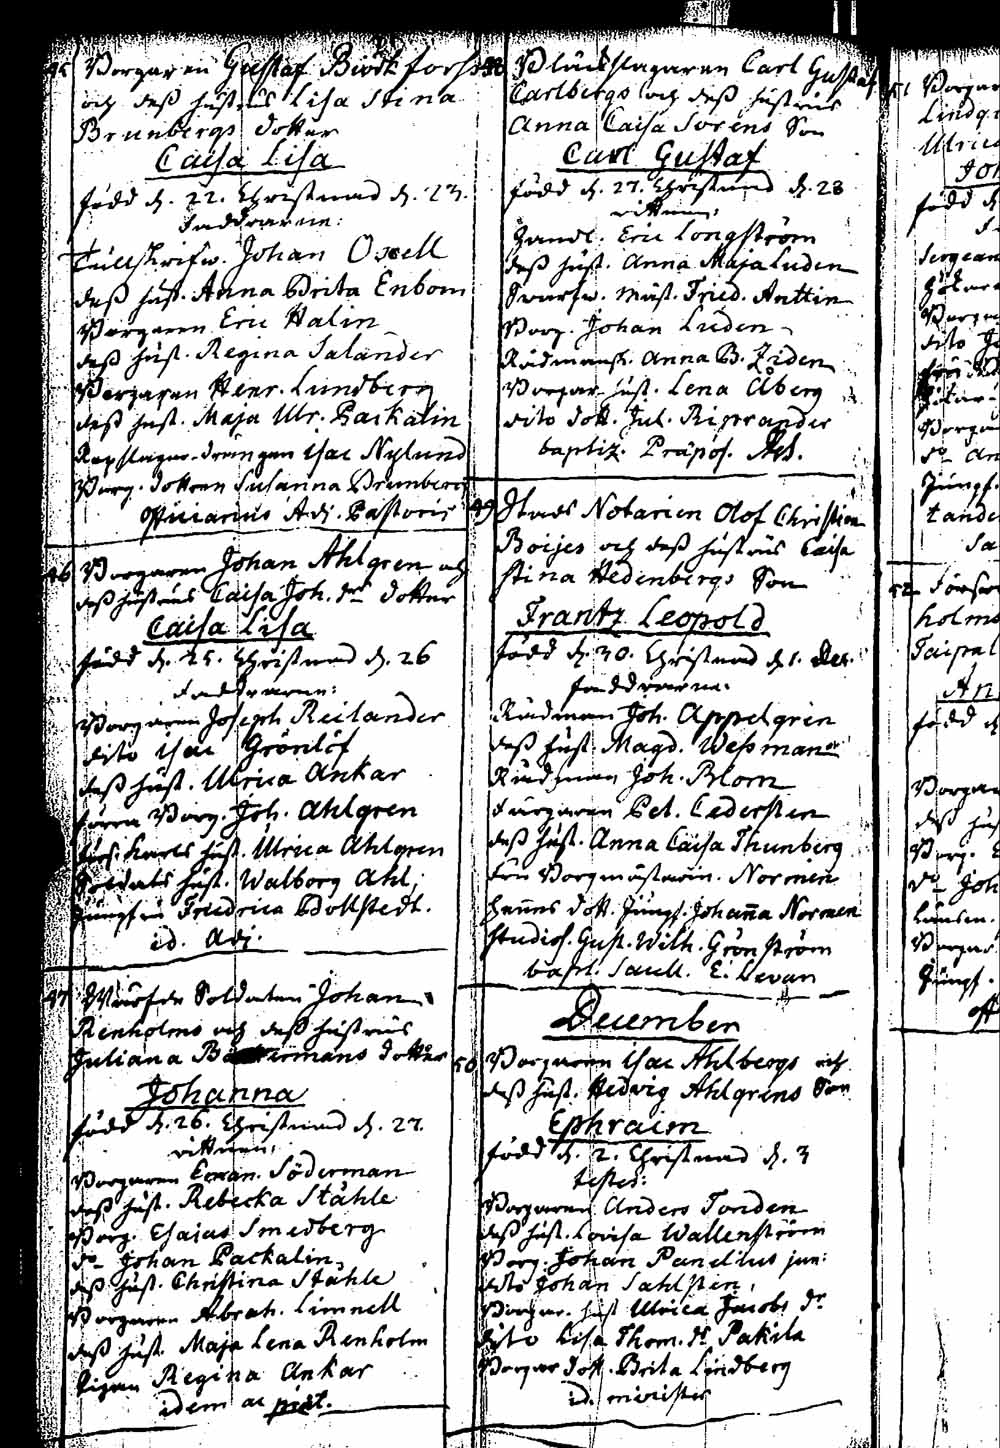 45 Borgaren Gustaf Björkfors
och dess hustrus Lisa Stina
Brunbergs dotter
Caisa Lisa
född d. 22. Christnad d. 23.
faddrarne:
Tullskrifw. Johan Oxell
dess hust. Anna Brita Enbom
Borgaren Eric Halin
dess hust. Regina Salander
Borgaren Henr. Lundberg
dess hust. Maja Ulr. Packalin
Repslagar-drengen Isac Nylund
Borg. dottren Susanna Brunberg
Officiarius Adj. Pastoris
46 Borgaren Johan Ahlgren och
dess hustrus Caisa Joh. dr dotter
Caisa Lisa
född d. 25. Christnad d. 26
faddrarne:
Borgaren Joseph Reilander
dito Isac Grönlöf
dess hust. Ulrica Ankar
förra Borg. Joh. Ahlgren
hust. Ulrica Ahlgren
Soldats hust. Walborg Ahl;
Jungfru Fredrica Bollstedt.
id. Adj.
47 Soldaten Johan
Renholms och dess hustrus
Juliana dotter
Johanna
född d. 26. Christnad d. 27.
vittnen:
Borgaren Söderman
dess hust. Rebecka Ståhle
Borg. Esaias Smedberg
do Johan Packalin
dess hust. Christina Ståhle
Borgaren Abrah. Limnell
dess hust. Maja Lena Renholm
Pigan Regina Ankar
idem ac
48 Carl Gustaf
Carlbergs och dess hustrus
Anna Caisa Sorens Son
Carl Gustaf
född d. 27. Christnad d. 28
vittnen:
Handl. Eric Longström
dess hust. Anna Maja Luden
Swarfw. mäst. Fried. Anttin
Borg. Johan Luden
Rådmansk. Anna B. Ziden
Borgar hust. Lena Åberg
dito dott. Jul. Riprander
baptiz. Präpos.
49 Stads Notarien Olof Christian
Boijes och dess hustrus Caisa
Stina Hedenbergs Son
Frantz Leopold
född d. 30. Christnad d. 1. Dec.
faddrarne:
Rådman Joh. Appelgrin
dess hust. Magd. Wessman
Rådman Joh. Blom
Färgaren Pet. Cedersten
dess hust. Anna Caisa Thunberg
Fru Borgmästarin. Normen
Hannes dott. Jungf. Johanna Normen
Studios. Gust. Wilh. Grönström
bapt. Sacell. E. Levan
December
50 Borgaren Isac Ahlbergs och
dess hust. Hedvig Ahlgrens Son
Ephraim
född d. 2. Christnad d. 3
testes:
Borgaren Anders Tonden
dess hust. Lovisa Wallenström
Borg. Johan Pandius jun:
dito Johan Sahlsten,
Borgar. hust Ulrica Jacobs dr
dito Lisa Thom. dr Pakila
Borgar dott. Brita Lindberg
id. minister
51 Borgar
Lindq
Ulrica
Joh
född d
Sergean
Borgar
dito Jo
Borgar
do An
Jungf.
tande
52
holms
Taipal
An
född d
Borgar
dess hus
Borg. E
do Joh
Borgar
Jungf.
off